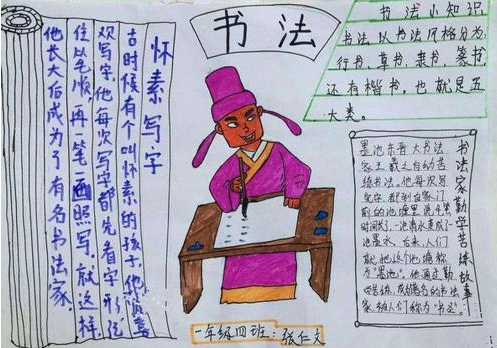 书法
怀素写字
古时候有个叫怀素的孩子,他很喜
欢写字,他每次写字都先看字形
位以毛顺,再一笔一画照写,就这样
他长大后成为了有名书法家。
书法小知识
书法以书法风格分为:
行书、草书、隶书、篆书
还有楷书,也就是五
大类。
书法家勤学苦练故事
墨池东晋大书法
家王羲之自幼苦
练书法。他每次写
完字,都到自家门
前的池塘里洗毛笔
时间长了,一池清水变成了
一池墨水,后来,人们
就把这个池塘称
为“墨池”。他通过勤
学苦练,成为著名的书法
家,被人们称为“书圣”。
一年级四班:张仁文